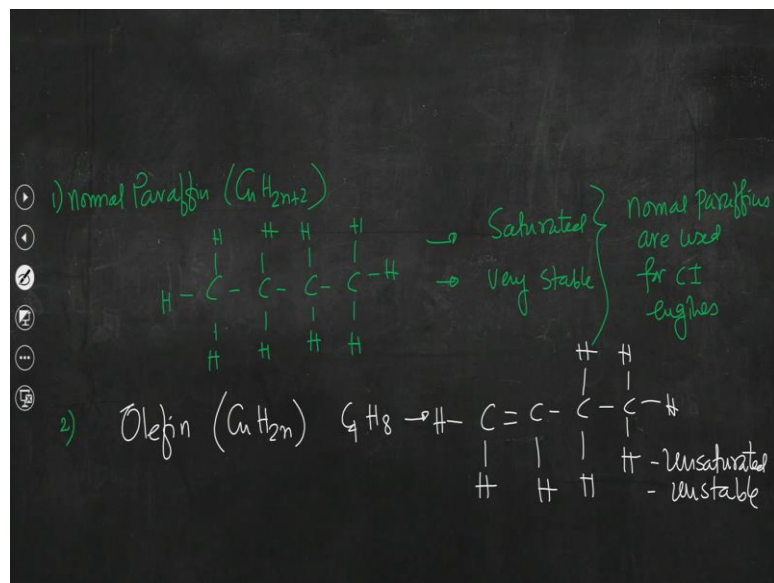 1) Normal Paraffin (CnH2n+2)
H H H H
H - C - C - C - C - H
H H H H
→ Saturated
→ Very Stable
nomal paraffins
are used
for CI
engines
2) Olefin (CnH2n) C4H8 → H - C = C - C - C - H
H H
H H H H
- Unsaturated
- Unstable